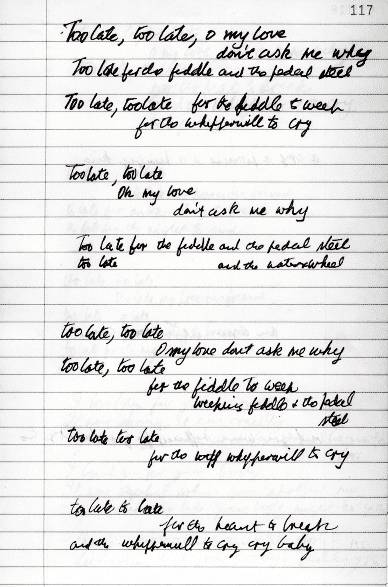 117
Too late, too late, o my love
don't ask me why
Too late for the fiddle and the pedal steel
Too late, too late for the fiddle to weep
for the whipperwill to cry
too late, too late
Oh my love
don't ask me why
too late for the fiddle and the pedal steel
too late and the waterwheel
too late, too late
O my love don't ask me why
too late, too late
for the fiddle to weep
weeping fiddle & the pedal
steel
too late too late
for the whipperwill to cry
too late to late
for the heart to break
and the whipperwill to cry cry baby